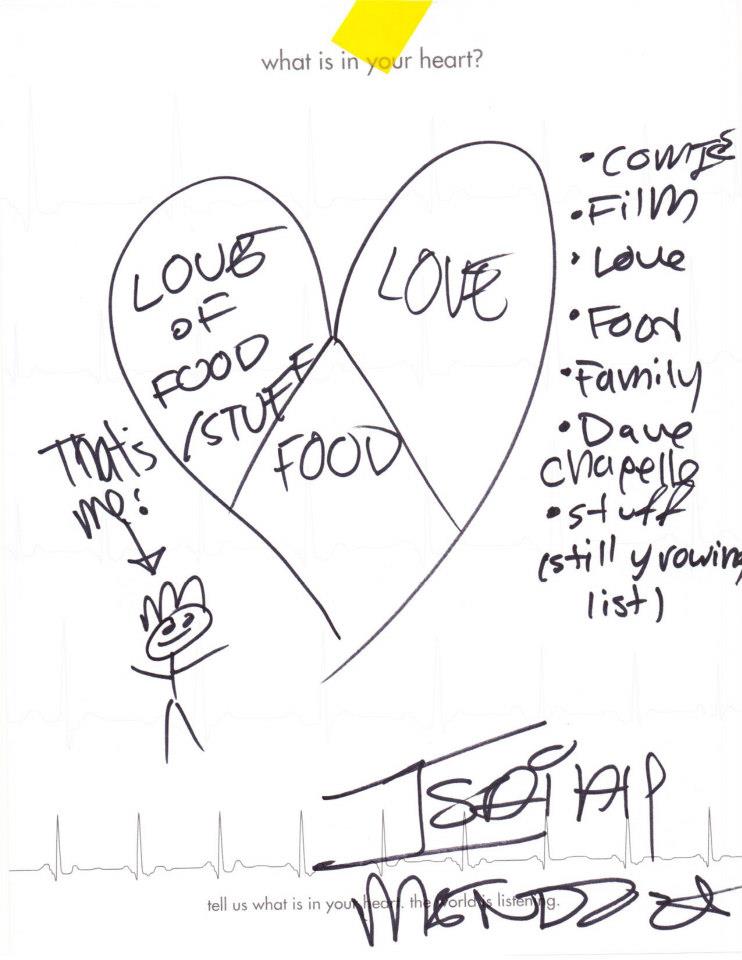 what is in your heart?
LOVE
OF
FOOD
/STUFF
LOVE
FOOD
•Comics
•Film
•Love
•Food
•Family
•Dave
Chapelle
•stuff
(still growing
list)
That's
me!
tell us what is in your heart. the world is listening.